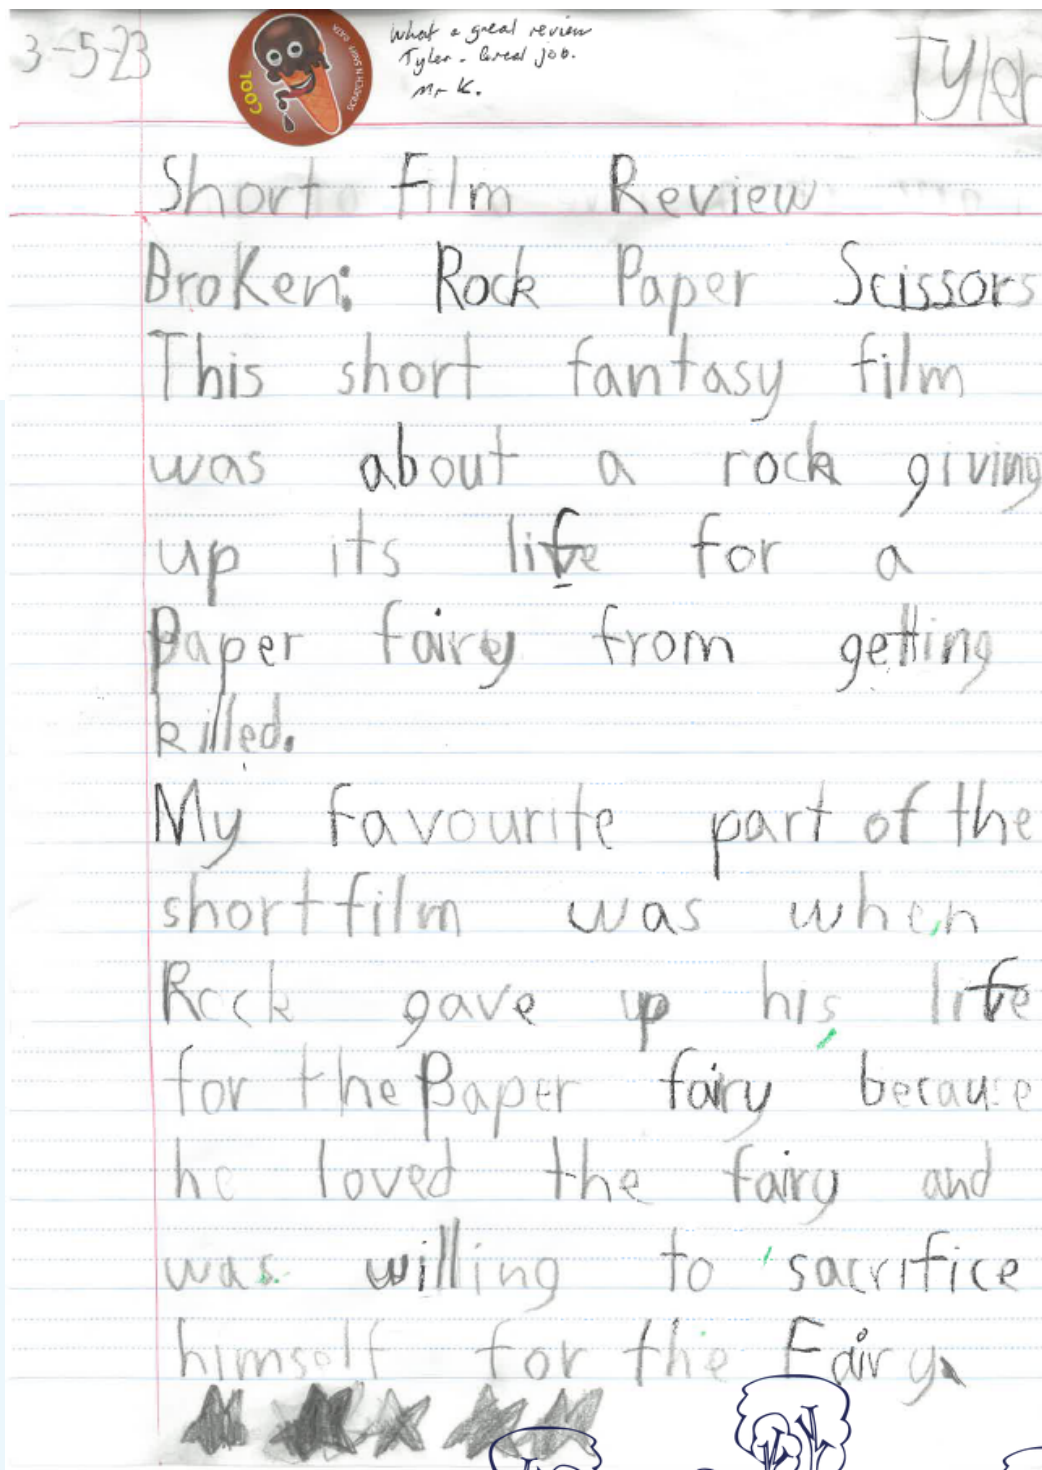 3-5-23
COOL
SCRATCH N SNIFF DATA
What a great review
Tyler. Great job.
Mr K.
Tyler
Short Film Review
Broken: Rock Paper Scissors
This short fantasy film
was about a rock giving
up its life for a
Paper fairy from getting
killed.
My favourite part of the
short film was when
Rock gave up his life
for the Paper fairy because
he loved the fairy and
was willing to sacrifice
himself for the Fairy.